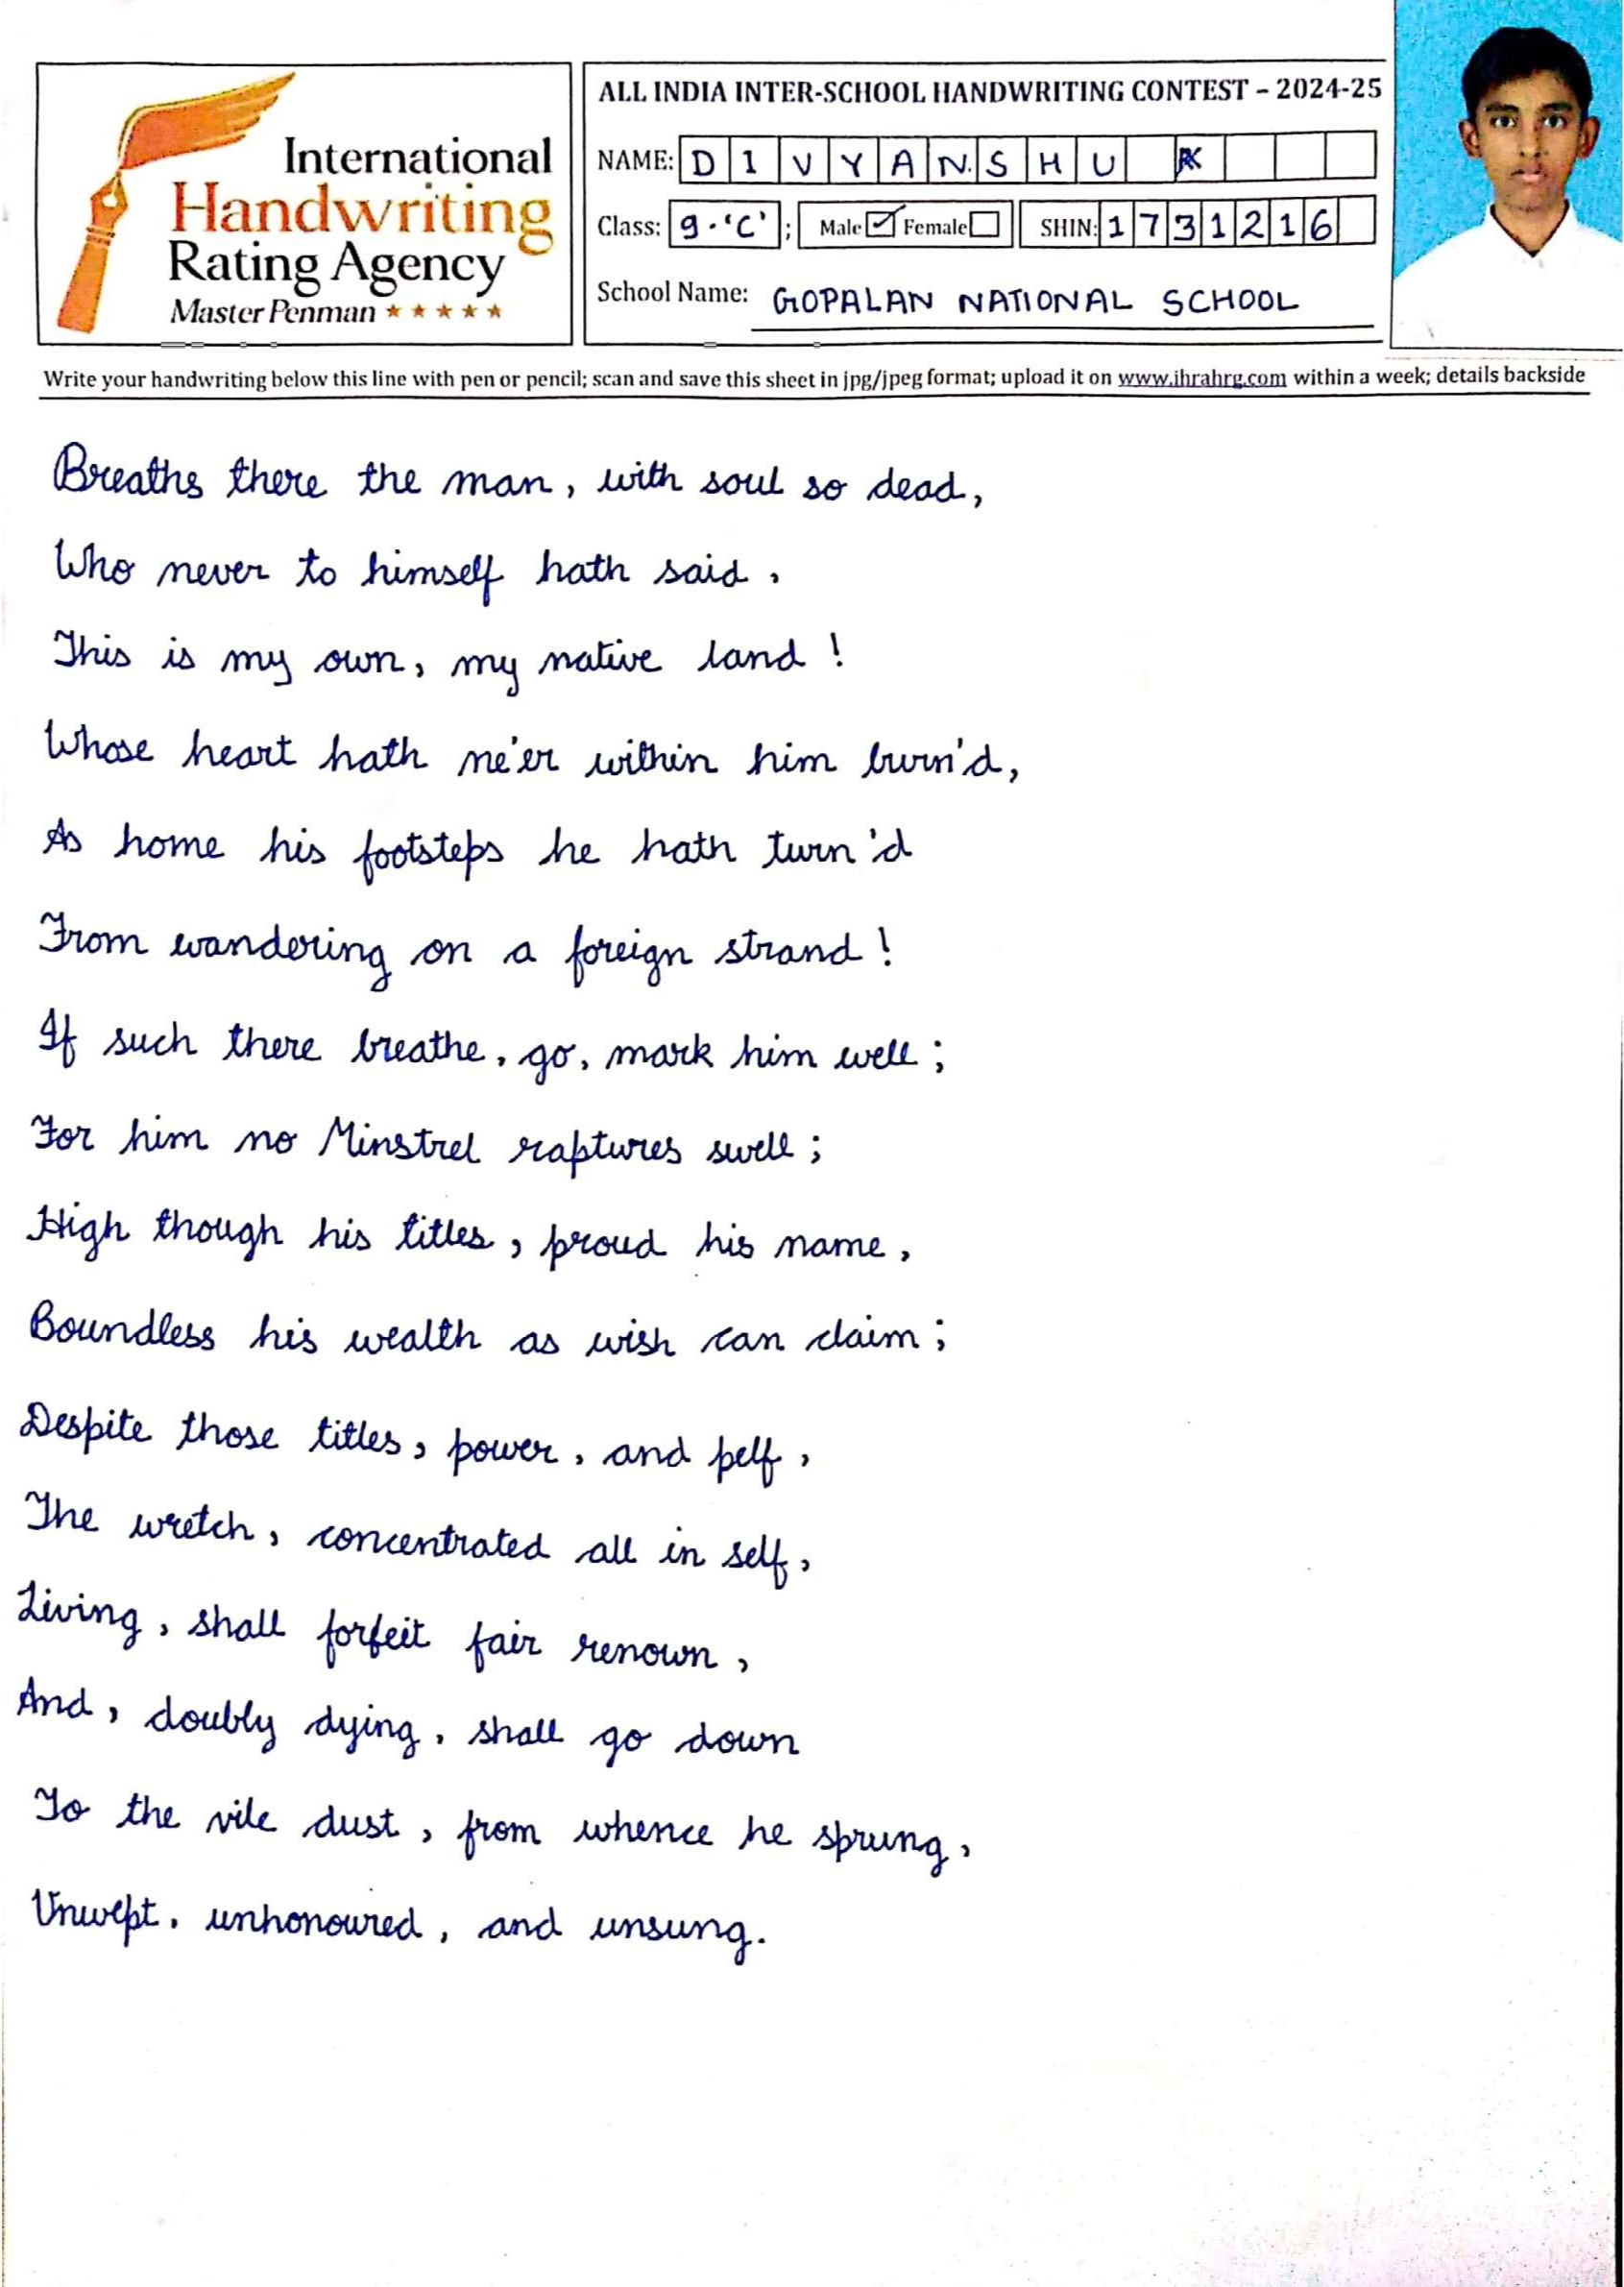 International
Handwriting
Rating Agency
Master Penman
ALL INDIA INTER-SCHOOL HANDWRITING CONTEST – 2024-25
NAME: D I V Y A N. S H U
Class: 9-'C' ; Male Female SHIN: 1 7 3 1 2 1 6
School Name: GOPALAN NATIONAL SCHOOL
Write your handwriting below this line with pen or pencil; scan and save this sheet in jpg/jpeg format; upload it on www.ihrahrg.com within a week; details backside
Breaths there the man, with soul so dead,
Who never to himself hath said,
This is my own, my native land!
Whose heart hath ne'er within him burn'd,
As home his footsteps he hath turn'd
From wandering on a foreign strand!
If such there breathe, go, mark him well;
For him no Minstrel raptures swell;
High though his titles, proud his name,
Boundless his wealth as wish can claim;
Despite those titles, power, and pelf,
The wretch, concentrated all in self,
Living, shall forfeit fair renown,
And, doubly dying, shall go down
To the vile dust, from whence he sprung,
Unwept, unhonoured, and unsung.